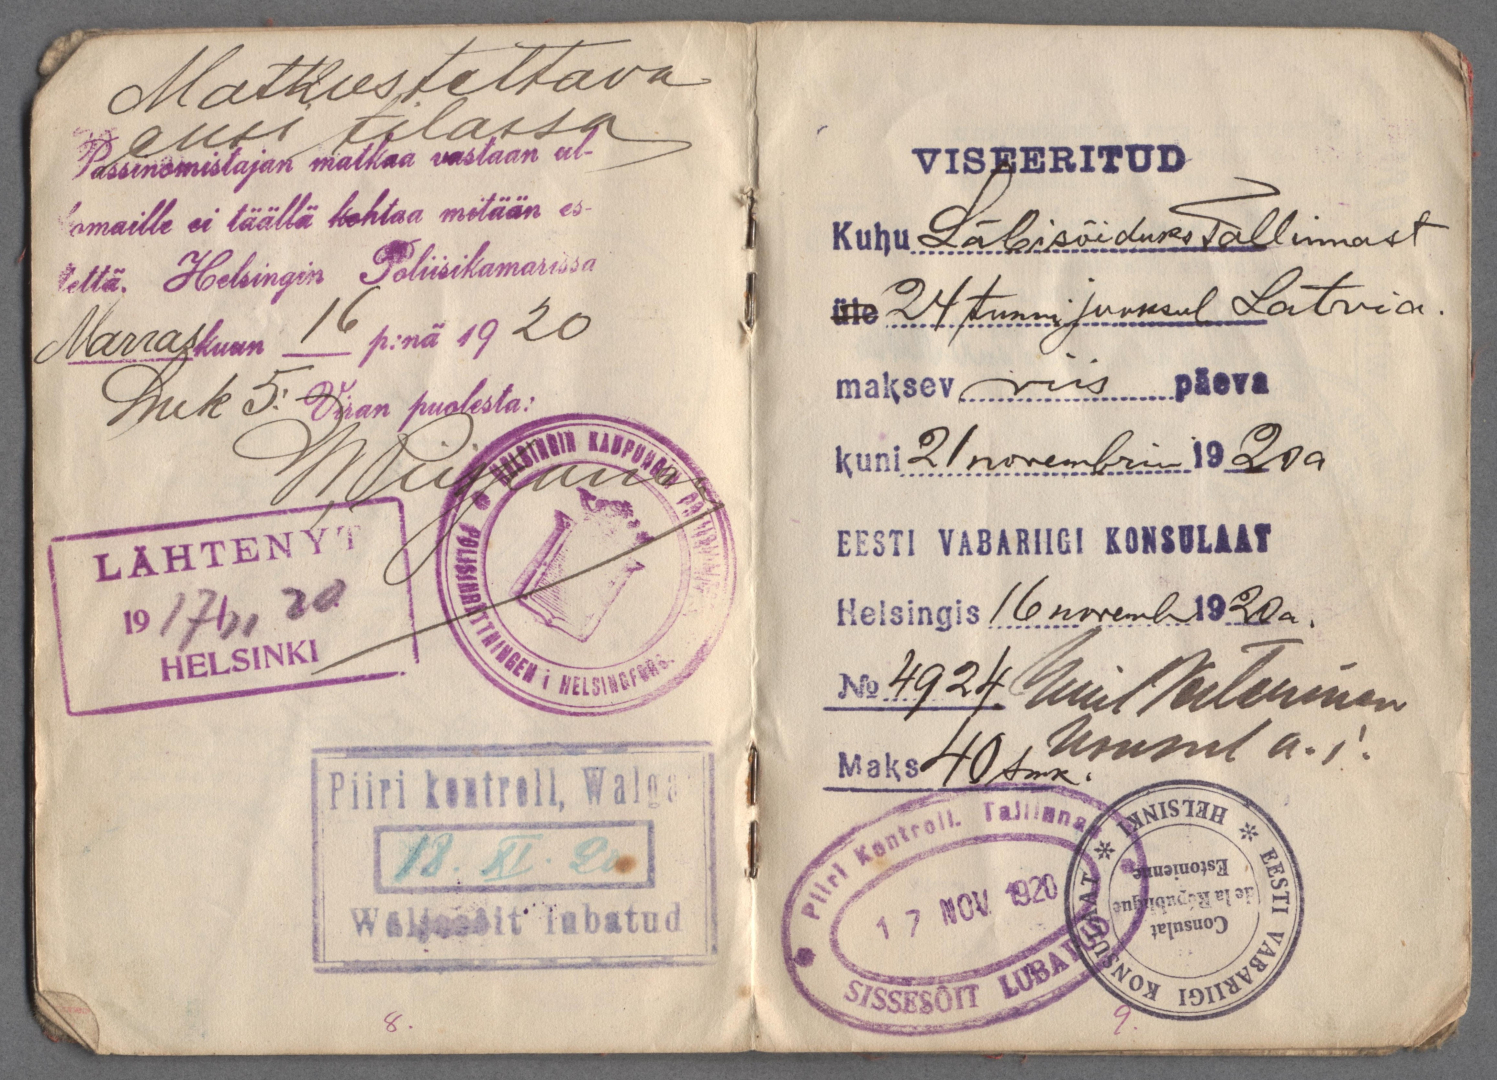 Matkustettava
ensi tilassa
Passinomistajan matkaa vastaan ul-
komaille ei täällä kohtaa mitään es-
tettä. Helsingin Poliisikamarissa
Marraskuun 16 p:nä 19 20
5: Viran puolesta:
HELSINGIN KAUPUNGIN
POLISINRÄTTNINGEN i HELSINGFORS.
LÄHTENYT
19 17/XI 20
HELSINKI
Piiri kontroll, Walga
18. XI. 20
Wäljasõit lubatud
8.
VISEERITUD
Kuhu Läbisõiduks Tallinnast
üle 24 tunni jooksul Latvia.
maksev viis päeva
kuni 21 novembrin 19 20 a
EESTI VABARIIGI KONSULAAT
Helsingis 16 novemb 19 20 a.
№ 4924.
Maks 40 smk.
Piiri Kontroll. Tallinnas
17 NOV. 1920
SISSESÕIT LUBATUD
EESTI VABARIIGI KONSULAAT * HELSINKI *
Consulat
de la République
Estonienne
9.